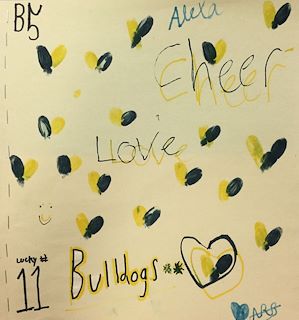 B5
Alexa
Cheer
Love
Lucky #
11
Bulldogs